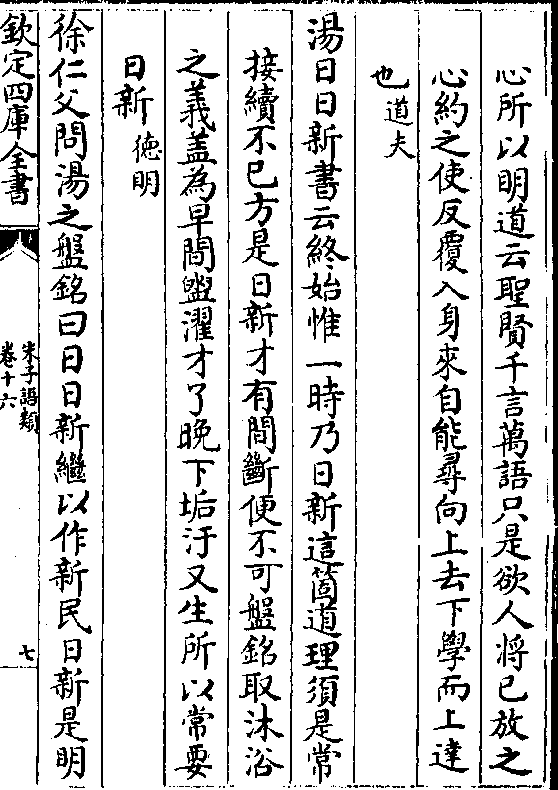 心所以明道云聖賢千言萬語只是欲人將已放之
心約之使反覆入身來自能尋向上去下學而上達
也道夫
湯日日新書云終始惟一時乃日新這箇道理須是常
接續不已方是日新才有間斷便不可盤銘取沐浴
之義蓋為早間盥濯才了晚下垢汙又生所以常要
日新德明
徐仁父問湯之盤銘曰日日新繼以作新民日新是明
欽定四庫全書
朱子語類
卷十六
七